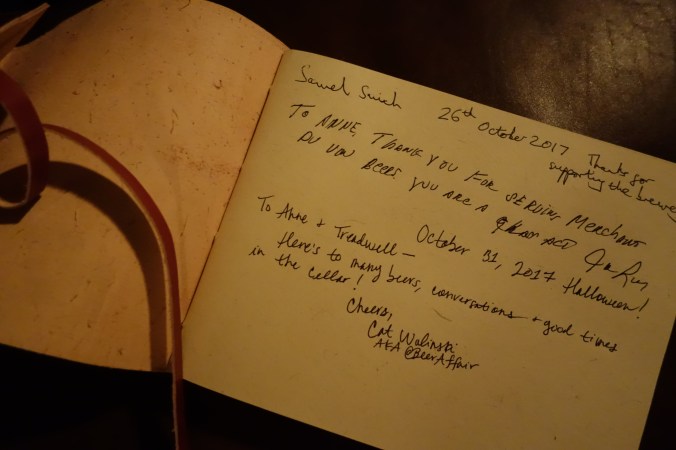 26th October 2017
Thanks for
supporting the brewery
TO ANNE, THANK YOU FOR SERVING MERCHANT
DU VIN BEERS YOU ARE A CLASS ACT
October 31, 2017 Halloween!
To Anne + Treadwell —
Here's to many beers, conversations + good times
in the cellar!
Cheers,
Cat Wolinski
AKA @BeerAffair